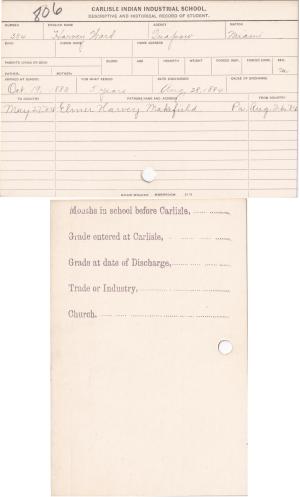 806
CARLISLE INDIAN INDUSTRIAL SCHOOL.
DESCRIPTIVE AND HISTORICAL RECORD OF STUDENT.
NUMBER ENGLISH NAME AGENCY NATION
354 Harvey Ward Quapaw Miami
BAND INDIAN NAME HOME ADDRESS
PARENTS LIVING OR DEAD BLOOD AGE HEIGHT WEIGHT FORCED INSP. FORCED EXPR. SEX
FATHER. MOTHER. M.
ARRIVED AT SCHOOL FOR WHAT PERIOD DATE DISCHARGED CAUSE OF DISCHARGE
Oct. 19, 1880 5 years Aug. 28, 1884
TO COUNTRY PATRONS NAME AND ADDRESS FROM COUNTRY
May 27, 84 Elmer Harvey, Makefield Pa. Aug
Months in school before Carlisle,
Grade entered at Carlisle,
Grade at date of Discharge,
Trade or Industry,
Church.